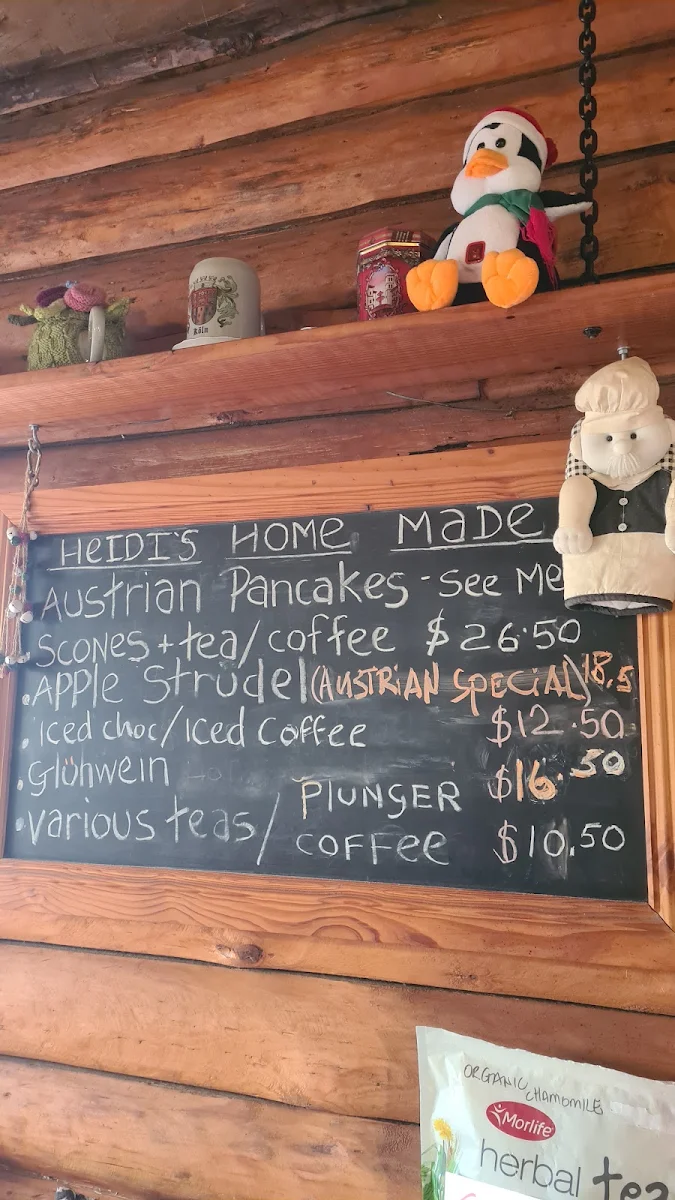 Köln
HEIDI'S HOME MADE
AUStrian Pancakes - See Me
SCONES + tea/coffee $26.50
.APPle Strüdel (AUSTRIAN SPECIAL) 18.5
. iced choc/Iced Coffee $12.50
. Glühwein $16.50
. various teas/ PlUNGER COFFEE $10.50
ORGANIC CHAMOMILE
Morlife
herbal tea